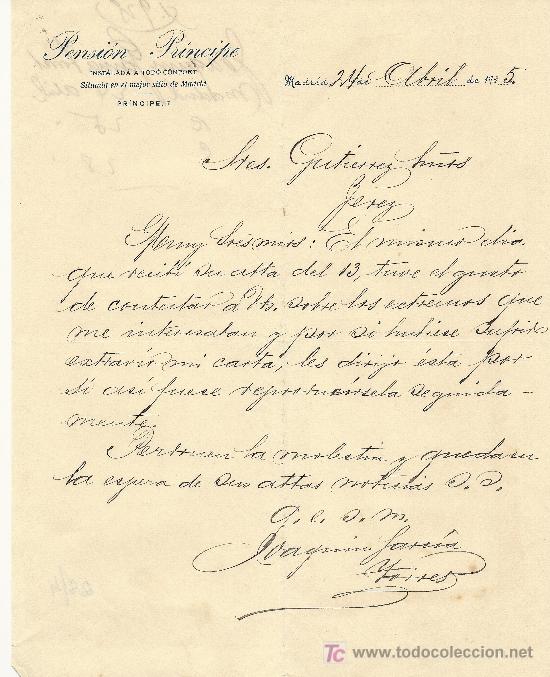 Pensión Príncipe
INSTALADA A TODO CONFORT
Situada en el mejor sitio de Madrid
PRÍNCIPE, 7
Madrid 24 de Abril de 1925.
Sres. Gutierrez Hnos
Jerez
Muy Sres mios: El mismo dia
que recibí su atta del 13, tuve el gusto
de contestar á Vds. sobre los extremos que
me interesaban y por si hubiese sufrido
extravio mi carta, les dirijo esta por
si así fuese reproducírsela seguida-
mente.
Perdonen la molestia y quedo en
la espera de sus attas noticias S. S.
q. e. s. m.
Joaquin García
Torres
TC todocoleccion
www.todocoleccion.net